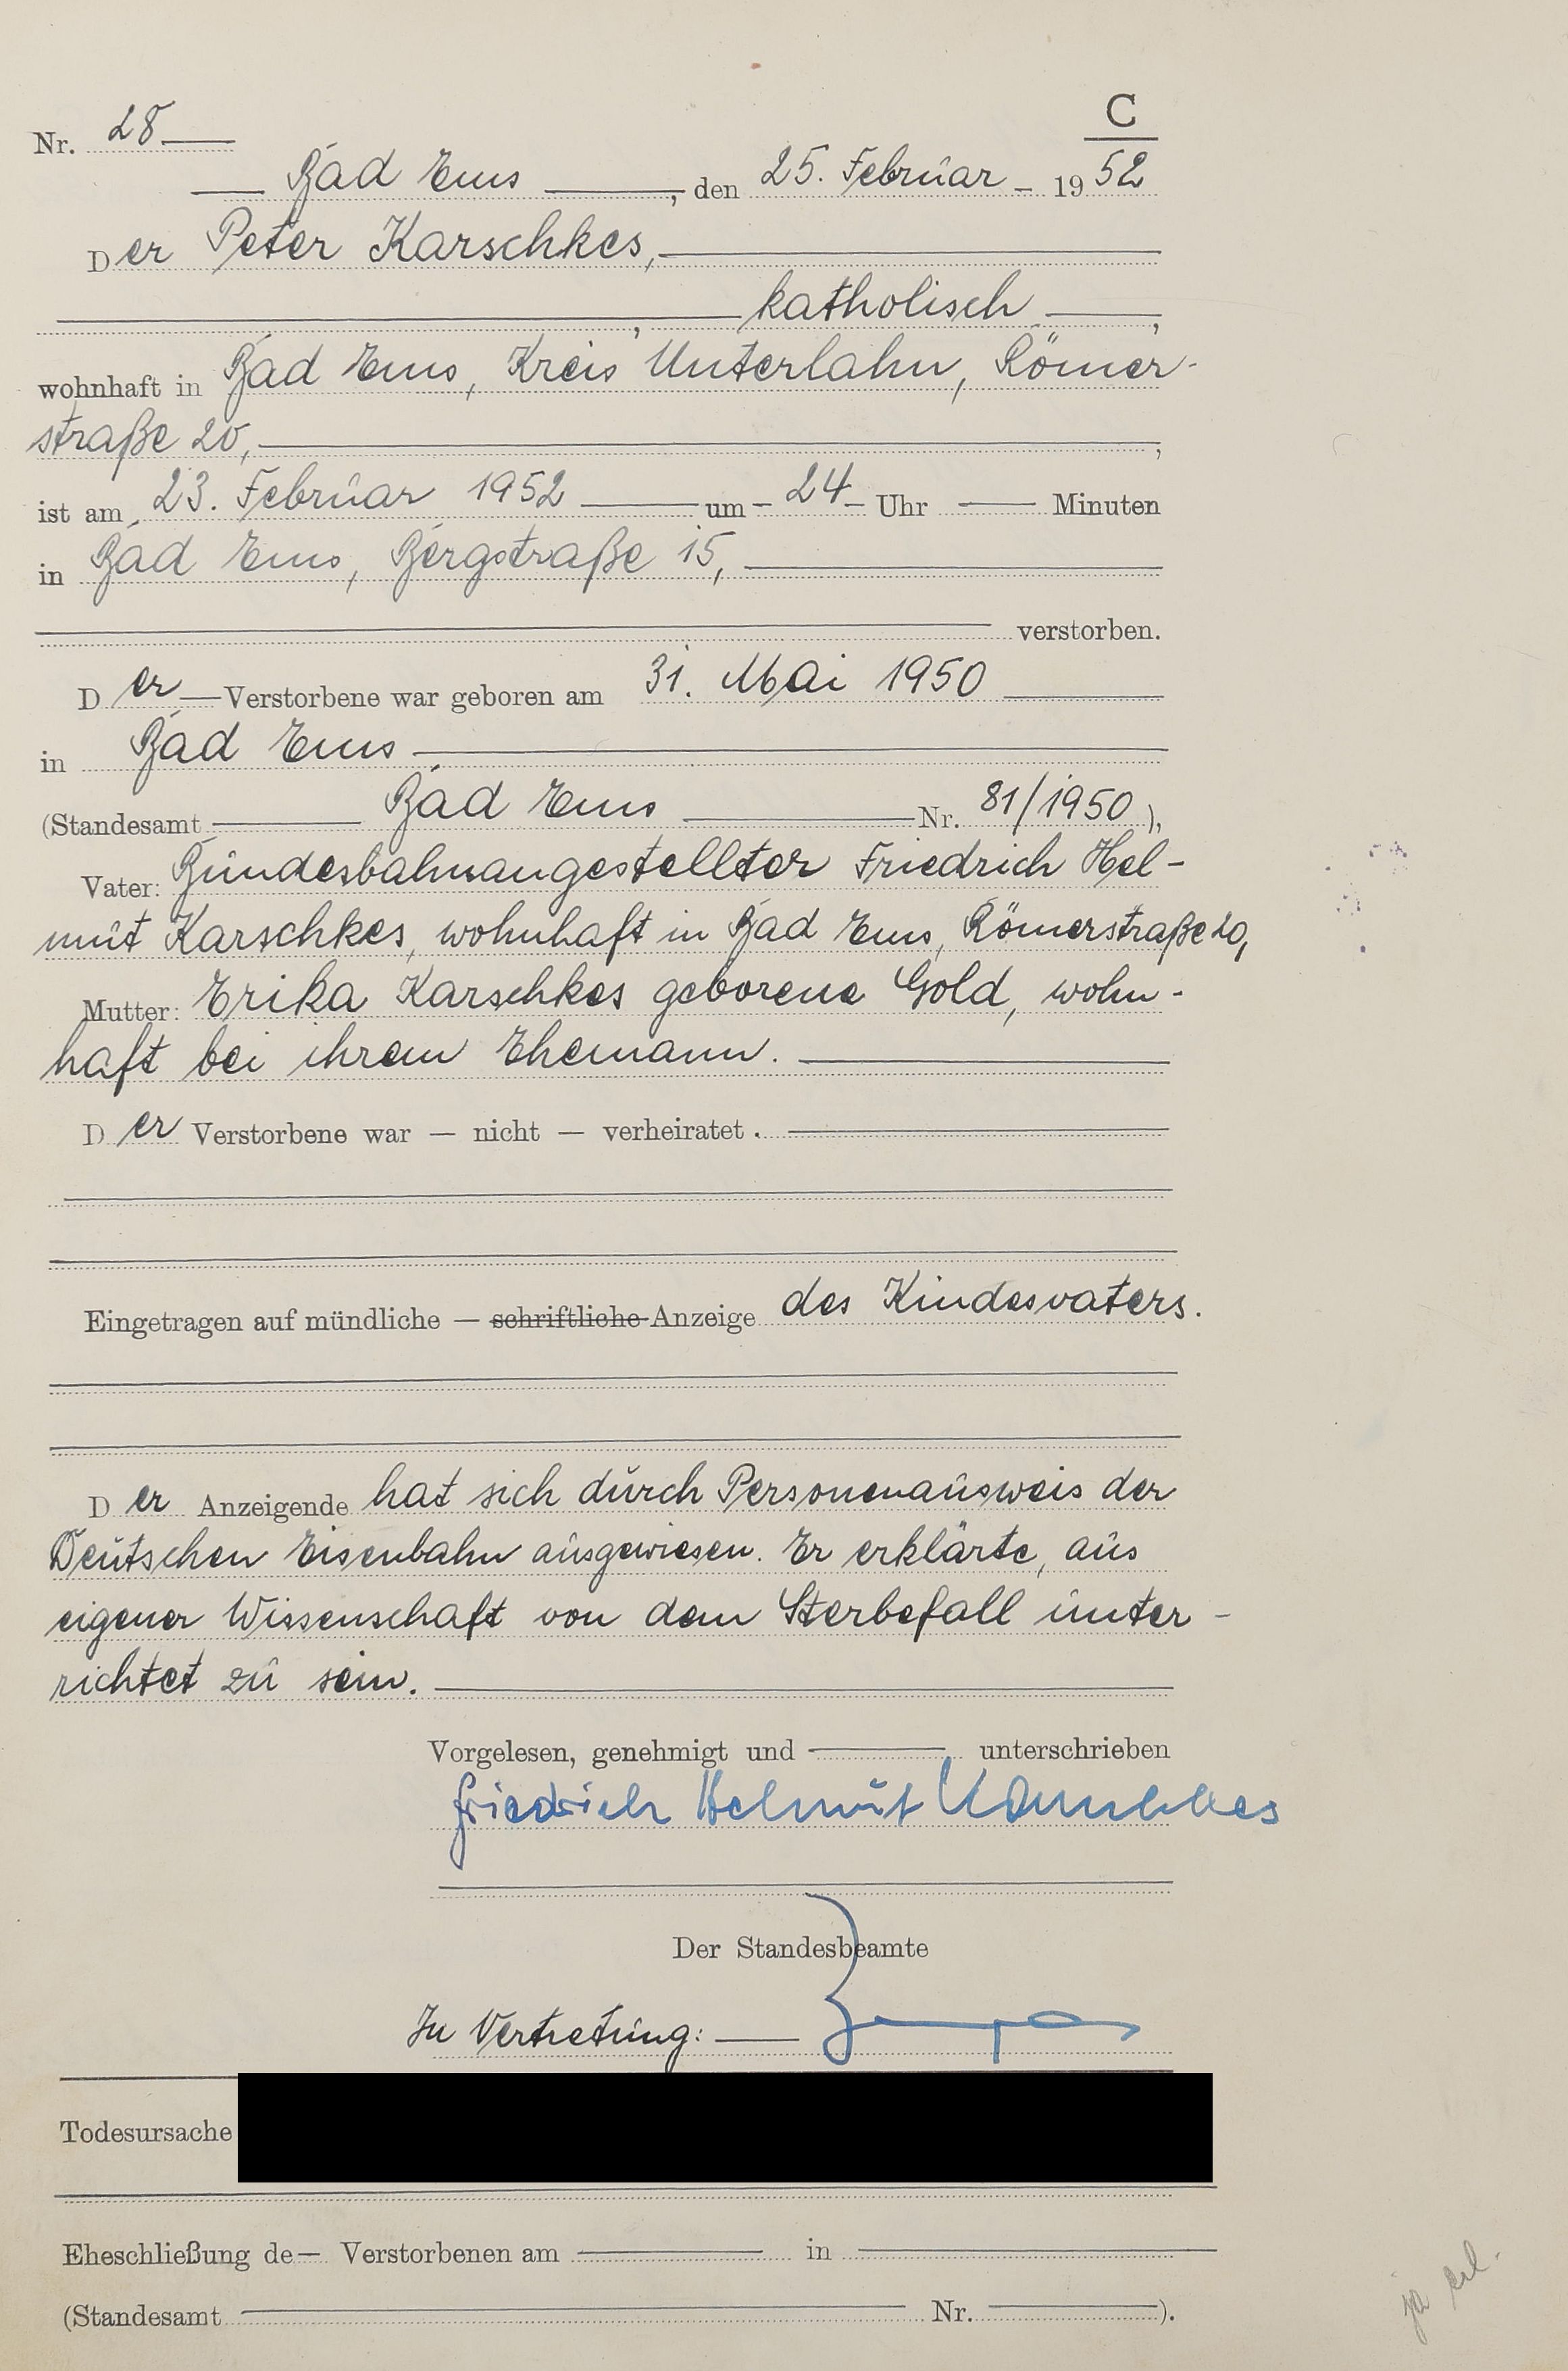 C
Nr. 28
Bad Ems, den 25. Februar 1952
Der Peter Karschkes,
, katholisch,
wohnhaft in Bad Ems, Kreis Unterlahn, Römer-
straße 20,
ist am 23. Februar 1952 um 24 Uhr Minuten
in Bad Ems, Bergstraße 15,
verstorben.
Der Verstorbene war geboren am 31. Mai 1950
in Bad Ems
(Standesamt Bad Ems Nr. 81/1950),
Vater: Bundesbahnangestellter Friedrich Hel-
mut Karschkes, wohnhaft in Bad Ems, Römerstraße 20,
Mutter: Erika Karschkes geborene Gold, wohn-
haft bei ihrem Ehemann.
Der Verstorbene war — nicht — verheiratet.
Eingetragen auf mündliche — schriftliche Anzeige des Kindesvaters.
Der Anzeigende hat sich durch Personenausweis der
Deutschen Eisenbahn ausgewiesen. Er erklärte, aus
eigener Wissenschaft von dem Sterbefall unter-
richtet zu sein.
Vorgelesen, genehmigt und unterschrieben
Friedrich Helmut Karschkes
Der Standesbeamte
In Vertretung:
Todesursache
Eheschließung de Verstorbenen am in
(Standesamt Nr. ).